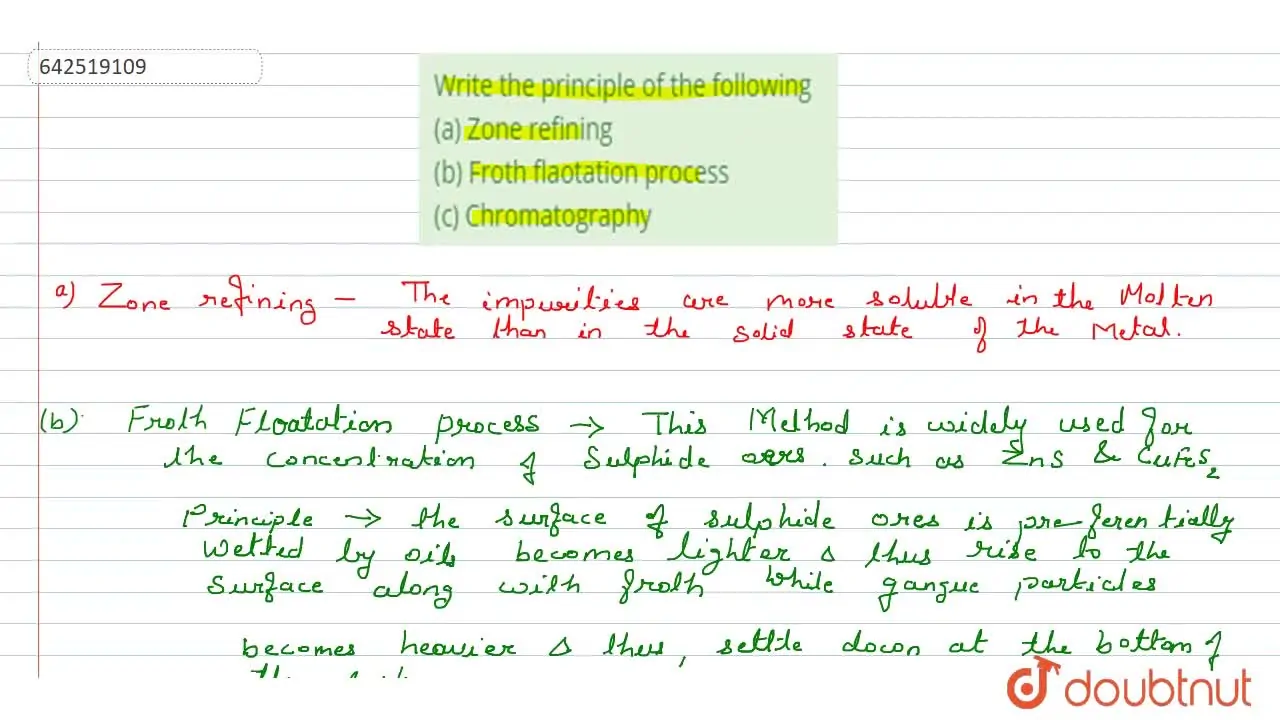 642519109
Write the principle of the following
(a) Zone refining
(b) Froth flaotation process
(c) Chromatography
a) Zone refining – The impurities are more soluble in the Molten
state than in the solid state of the Metal.
(b) Froth Floatation process → This Method is widely used for
the concentration of Sulphide ores. such as ZnS & CuFeS2
Principle → the surface of sulphide ores is preferentially
wetted by oils becomes lighter & thus rise to the
surface along with froth while gangue particles
becomes heavier & thus, settle down at the bottom of
doubtnut